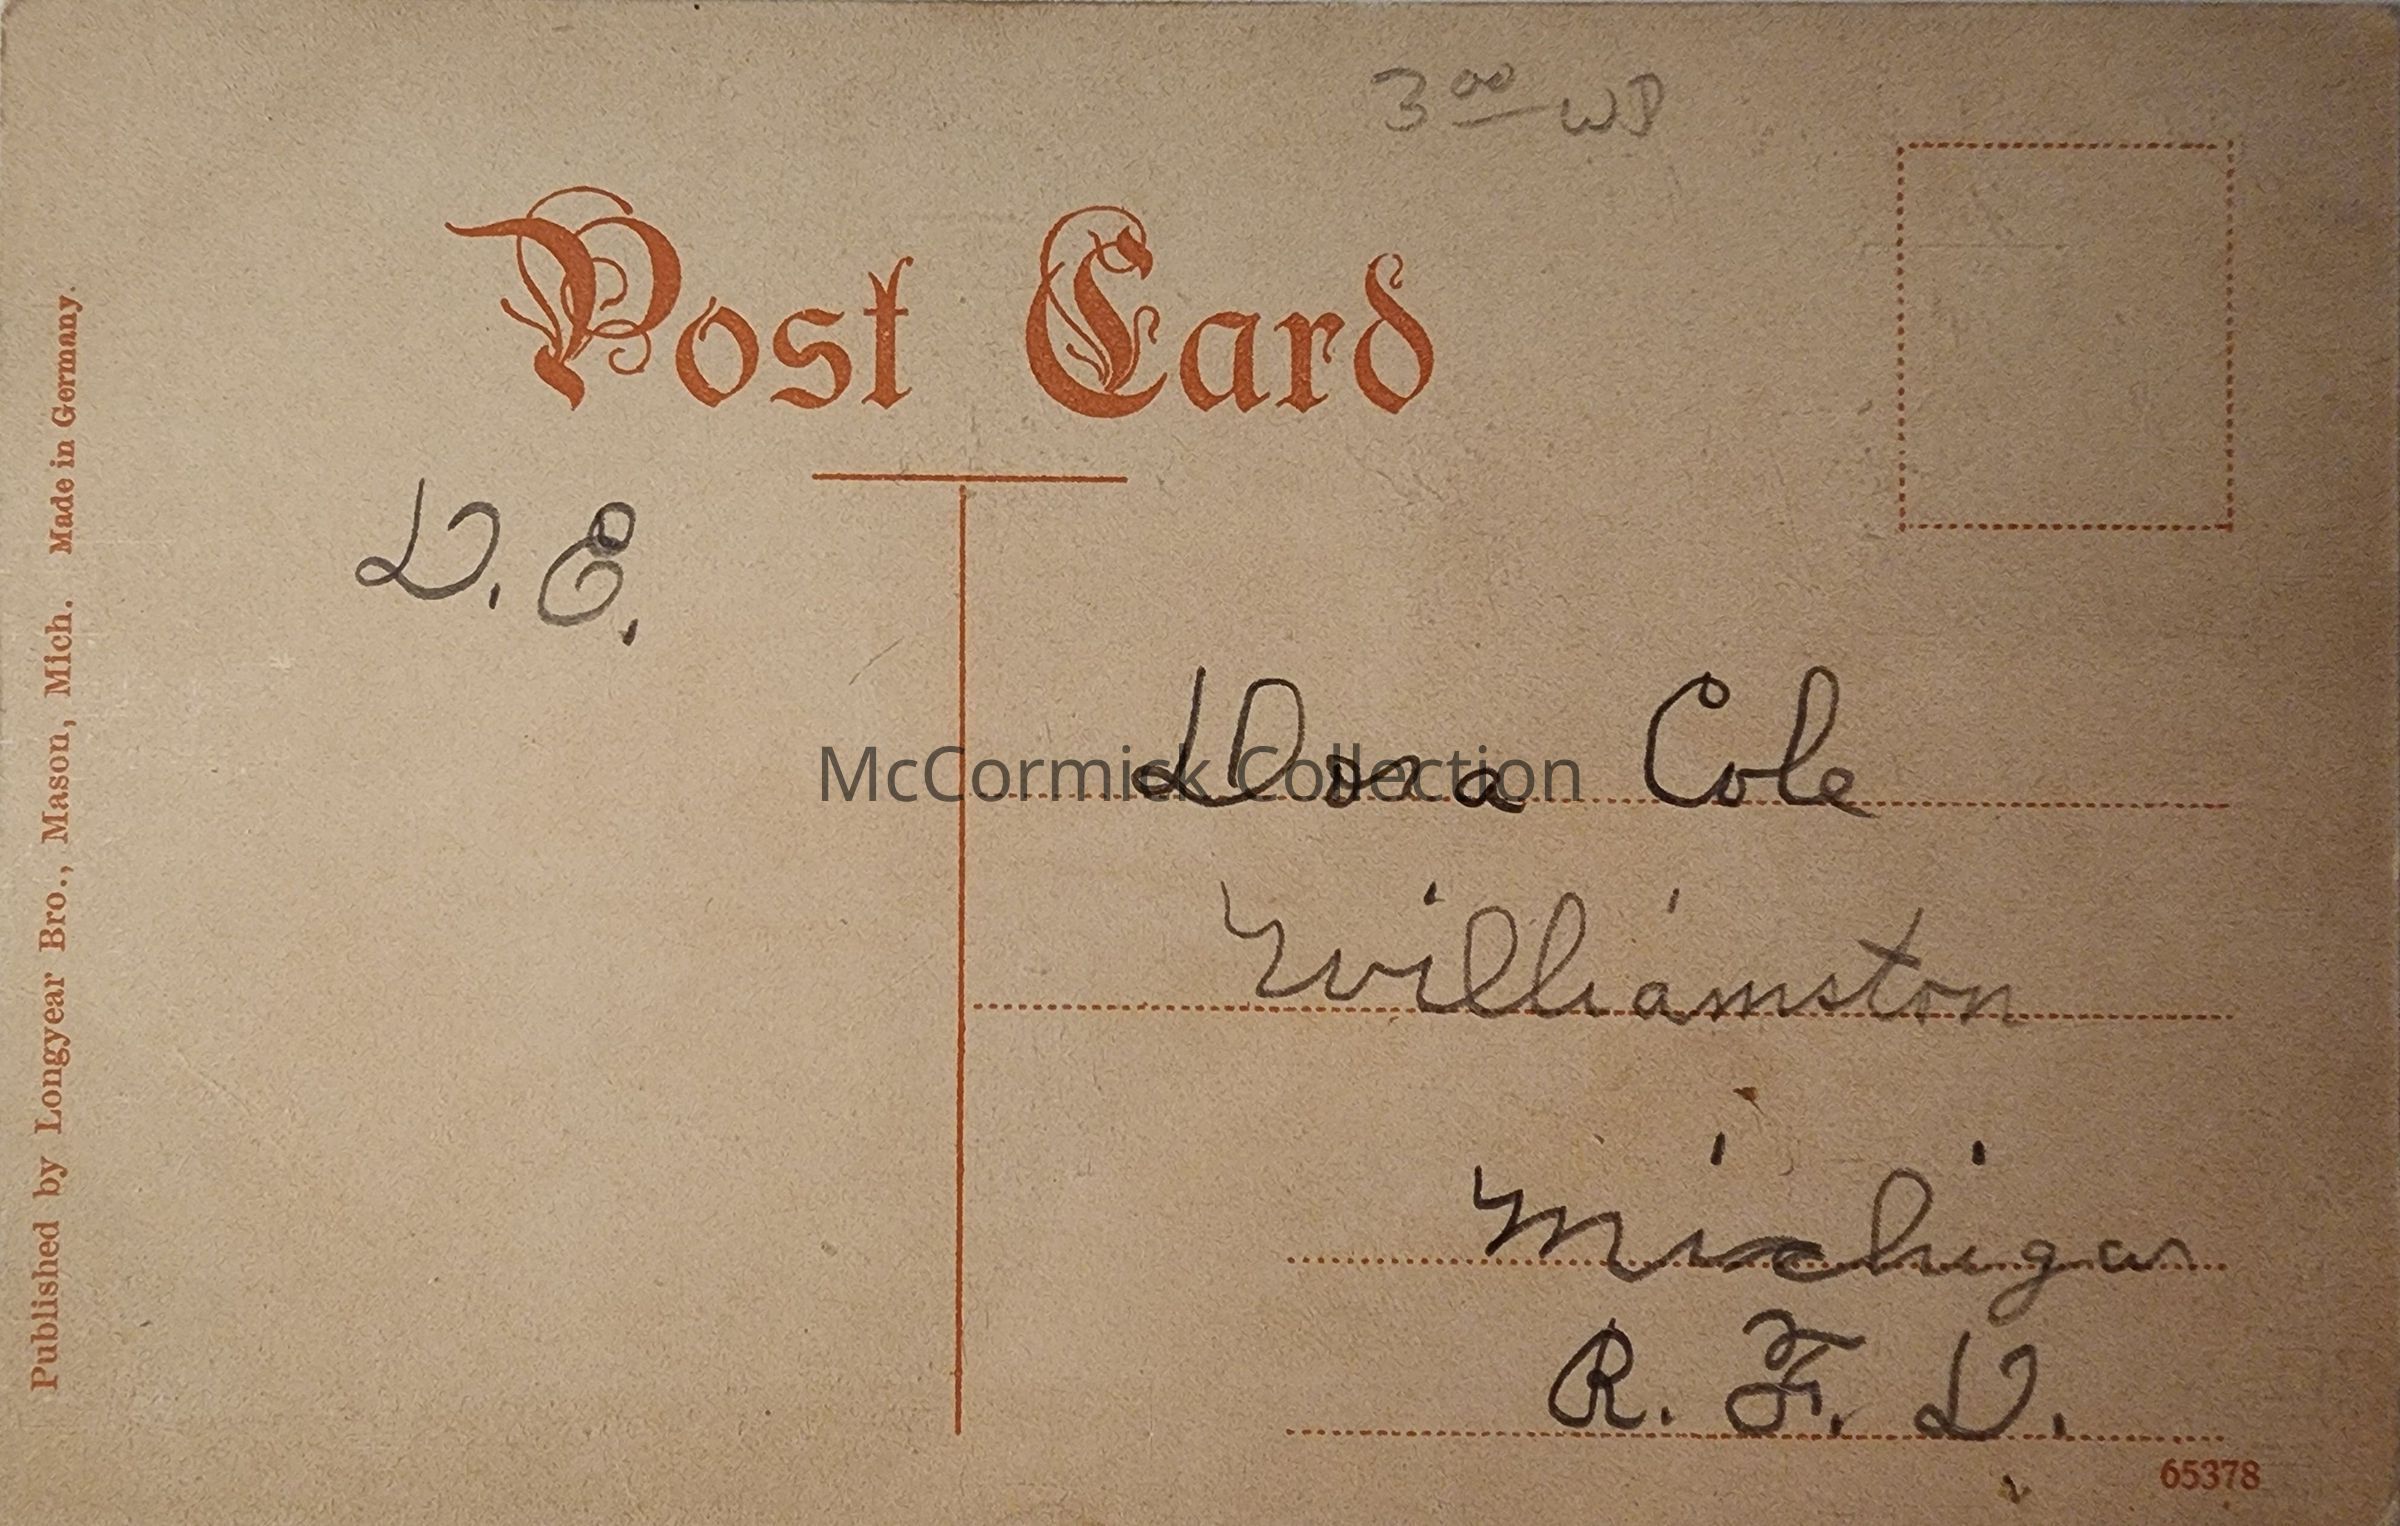 3 00 WD
Post Card
D. E.
Dora Cole
Williamston
Michigan
R. F. D.
65378
Published by Longyear Bro., Mason, Mich. Made in Germany.
McCormick Collection